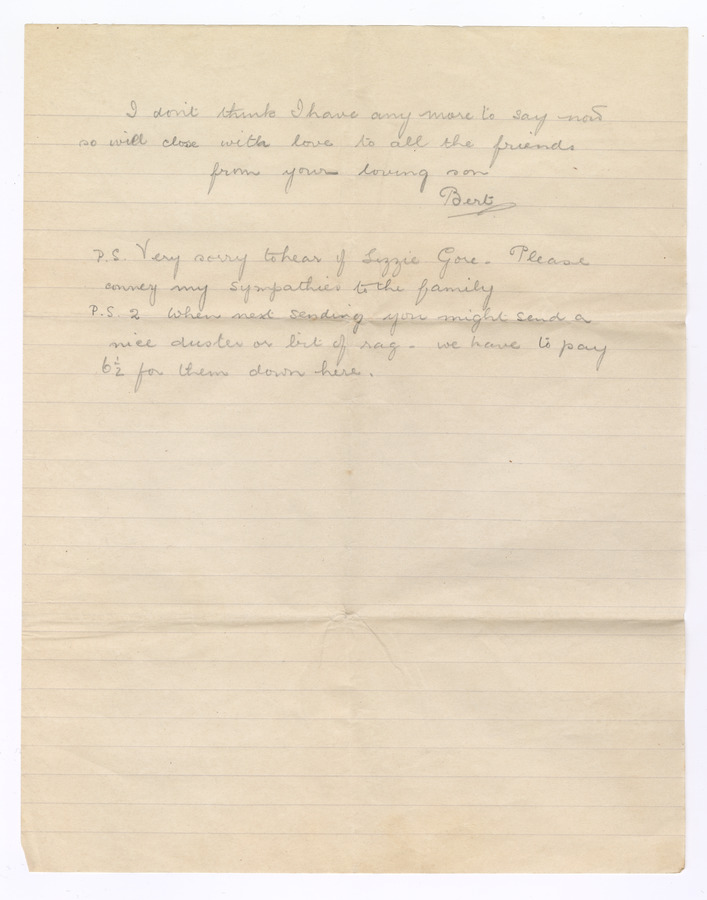 I don't think I have any more to say now
so will close with love to all the friends
from your loving son
Bert
P.S. Very sorry to hear of Lizzie Gore. Please
convey my sympathies to the family
P.S. 2 When next sending you might send a
nice duster or bit of rag - we have to pay
6½ for them down here.